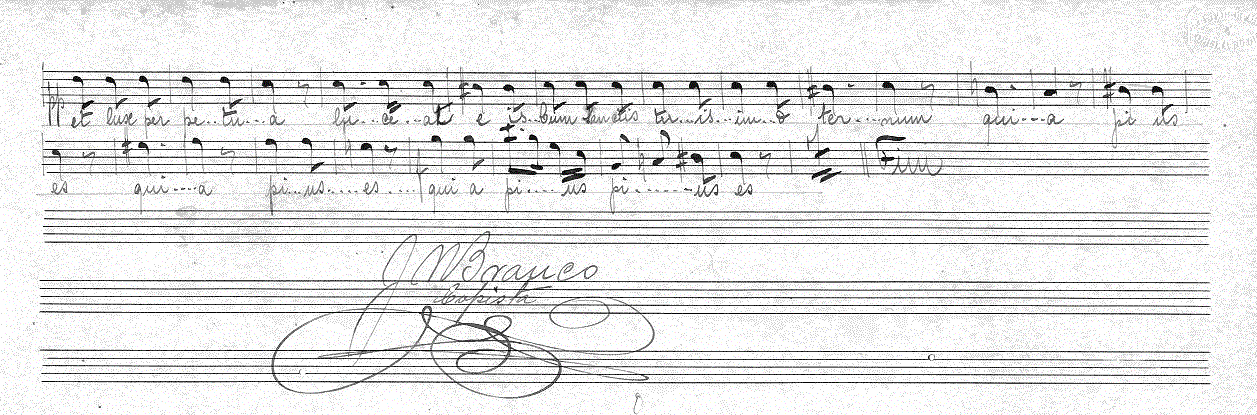 pp et luxe per pe..tu...a lu...ce..at e is..cum sanctis tu..is..in..e ter....num qui...a pi us
es qui....a pi..us....es.... qui a pi....us pi.......us es Fim
J N Branco
Copista